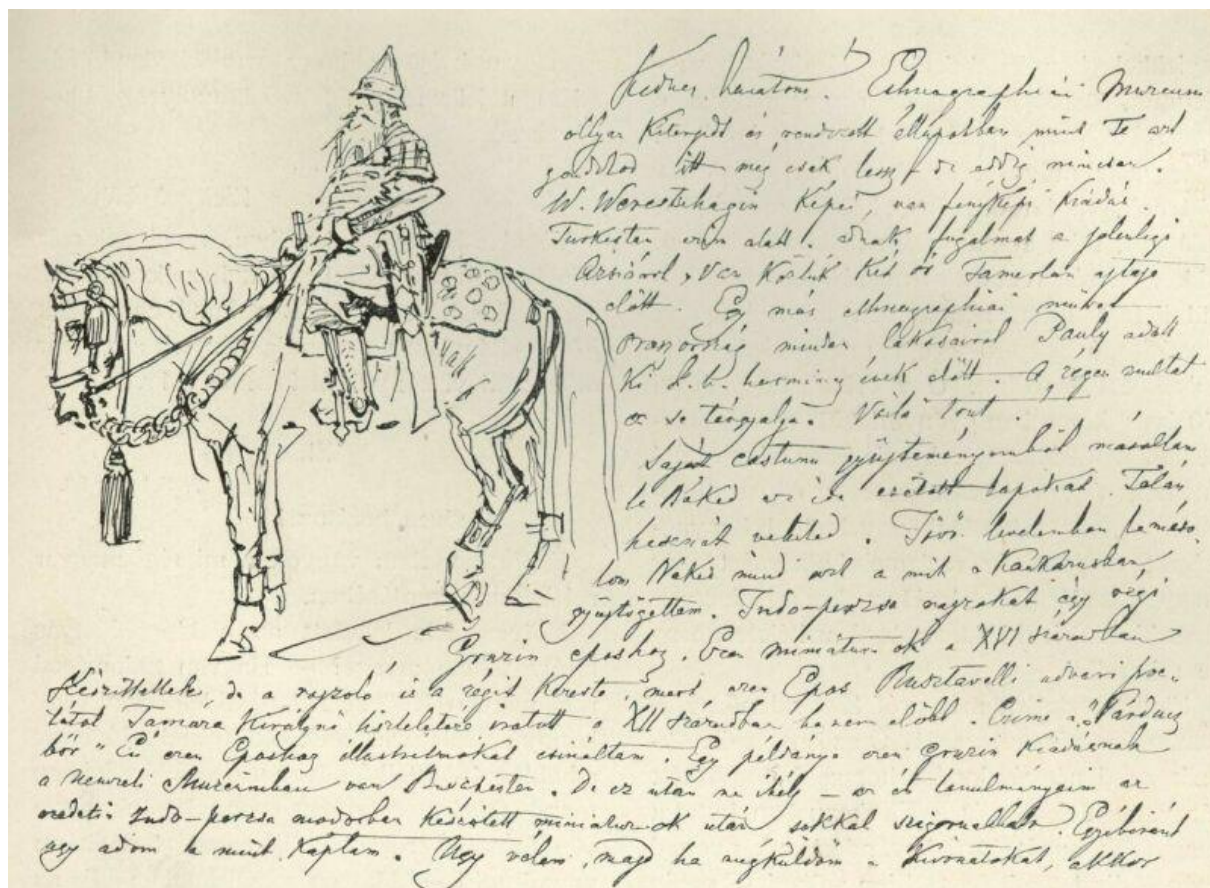 Kedves barátom. Ethnographiai Muzeum
ollyan kiterjedt és rendezett állapotban mint Te azt
gondolod itt még csak lessz – de addig nincsen.
W. Werestchagin Képei, van fényképi kiadás
Turkestan czim alatt. adnak fogalmat a jelenlegi
Ázsiáról, van köztük két ős Tamerlán ajtaja
előtt. Egy más ethnographiai művet
oroszország minden lakosairol Pauly adott
ki k. b. harmincz évek előtt. A régen multat
ez se tárgyalja. Voilà tout.
Saját costum gyüjteményemből másoltam
le Néked az ide csatolt lapokat. Talán
hasznát veheted. Jövő levelemben lemáso-
lom Néked mind azt a mit a Kaukázusban
gyüjtögettem. Indo-perzsa rajzokat egy régi
Gruzin eposhoz. Ezen miniatürok a XVI Században
Készittettek, de a rajzoló is a régit kereste, mert ezen Epos Rusztavelli udvari poe-
tától Tamára Királyné tiszteletére iratott a XII Században ha nem előbb. Czime a „Párducz
bőr" Én ezen Eposhoz illustratiókat csináltam. Egy példánya ezen Gruzin Kiadásnak
a nemzeti Muzeumban van Budapesten. De ez után ne itélj – az én tanulmányaim az
eredeti Indo-perzsa modorban készített miniatur-ok után sokkal szigorúabbak. Egyébiránt
ugy adom a mint kaptam. Ugy vélem, majd ha megküldöm a Kivonatokat, akkor